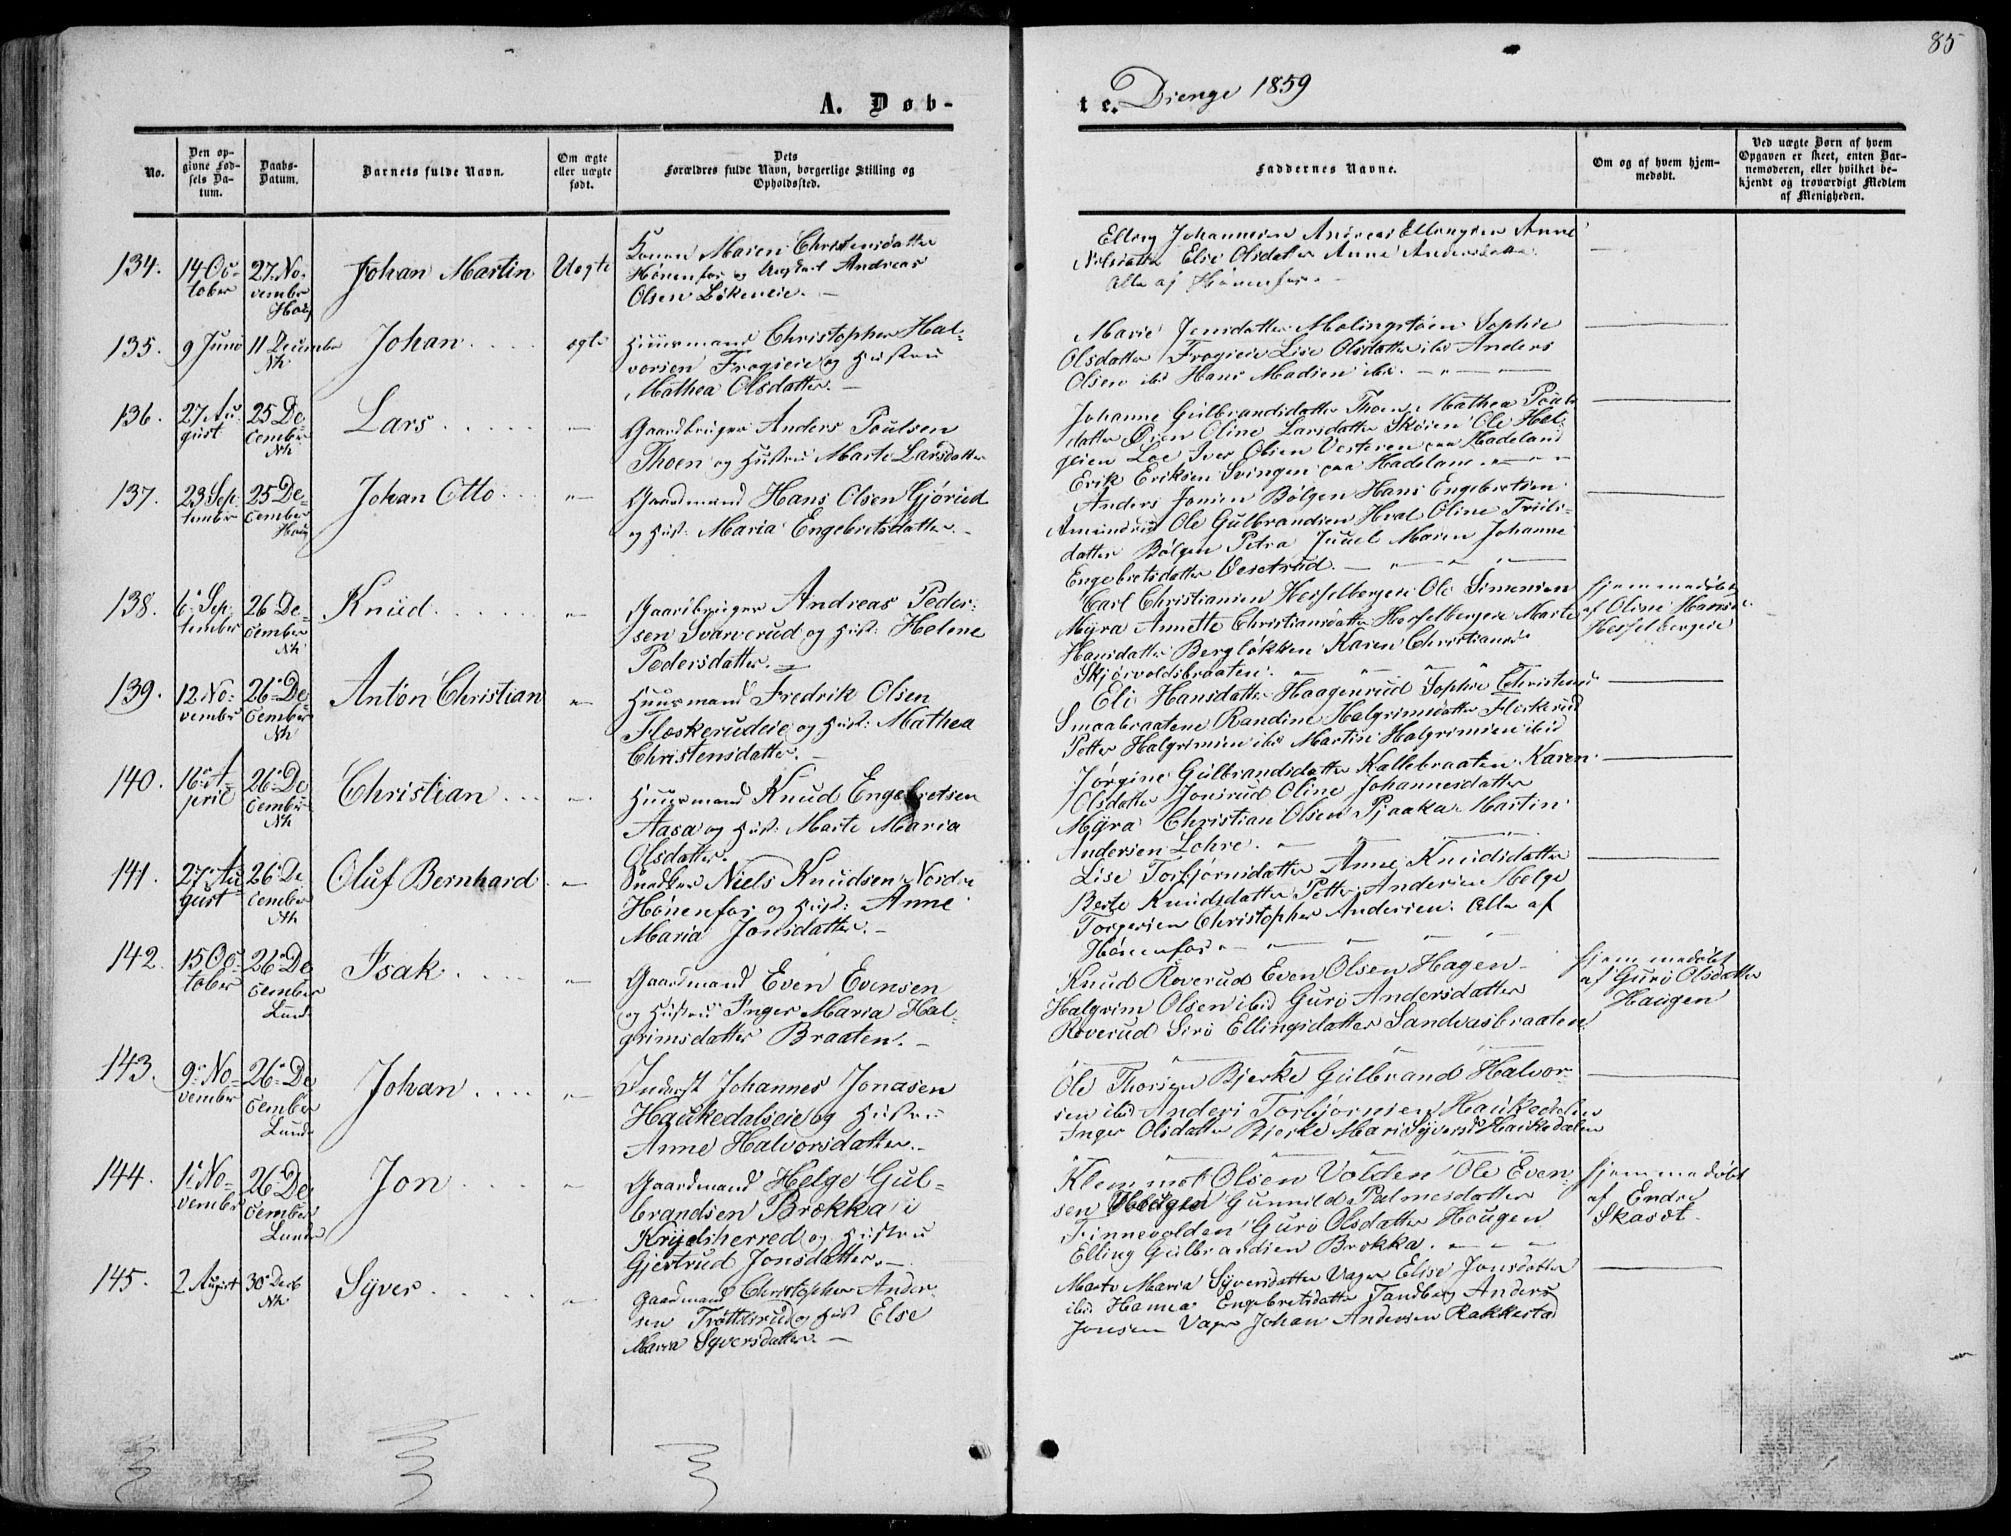 85
A. Døb-
te. Drenge 1859
No.
Den op-
givne Fød-
sels Da-
tum.
Daabs-
Datum.
Barnets fulde Navn.
Om ægte
eller uægte
født.
Dets
Forældres fulde Navn, borgerlige Stilling og
Opholdssted.
Faddernes Navne.
Om og af hvem hjem-
medøbt.
Ved uægte Børn af hvem
Opgaven er skeet, enten Bar-
nemoderen, eller hvilket be-
kjendt og troværdigt Medlem
af Menigheden.
134.
14 Oc-
tober
27 No-
vember
Houg
Johan Martin
Uegte
Maren Christensdatter
Hønenfos og Ungkarl Andreas
Olsen Løkeneie. —
Elling Johannesen Andreas Ellingsen Anne
Nilsdatter Else Olsdatter Anne Andersdatter
Alle af Hønenfos. -
135.
9 Juni
11 December
Nh.
Johan
egte
Huusmand Christopher Hal-
vorsen Frogseie og Hustru
Mathea Olsdatter. —
Marie Jensdatter Molingstøen Sophie
Olsdatter Frogseie Lise Olsdatter ibid Anders
Olsen ibid Hans Madsen ibd. —
136.
27 Au-
gust
25 De-
cember
Nh
Lars
Gaardbruger Anders Poulsen
Thoen og Hustru Marte Larsdatter
Johanne Gulbrandsdatter Thoen Mathea Pouls
datter Øien Oline Larsdatter Skøien Ole Hel-
gesen Loe Iver Olsen Vesteren paa Hadeland
Erik Eriksen Svingen paa Hadeland
137.
23 Sep-
tember
25 De-
cember
Houg
Johan Otto
Gaardmand Hans Olsen Gjørud
og Hust: Maria Engebretsdatter. -
Anders Jonsen Bølgen Hans Engebretsen
Amundrud Ole Gulbrandsen Hval Oline Truls-
datter Bølgen Petra Juuel Maren Johanne
Engebretsdatter Vesetrud.
138.
6 Sep-
tember
26 De-
cember
Nh
Knud
Gaardbruger Andreas Peder-
sen Svarverud og Hust: Helene
Pedersdatter.
Carl Christiansen Hesselbergeie Ole Simensen
Myra Annette Christiansdatter Hesselbergeie Marte
Hansdatter Bergløkken Karen Christians
Skjørvoldsbraaten.
Hjemmedøbt
af Oline Hansd.
Hesselbergeie
139.
12 No-
vember
26 De-
cember
Nh
Anton Christian
Huusmand Fredrik Olsen
Flæskerudeie og Hust: Mathea
Christensdatter.
Eli Hansdatter Haagenrud Sophie Christensd.
Smaabraatene Randine Halgrimsdatter Fleskerud
Petter Halgrimsen ibid Martin Halgrimsen ibid
140.
16 A-
pril
26 De-
cember
Nh
Christian
Huusmand Knud Engebretsen
Aasa og Hust: Marte Maria
Olsdatter.
Jørgine Gulbrandsdatter Kallebraaten Karen
Olsdatter Jonsrud Oline Johannesdatter
Myra Christian Olsen Pjaaka Martin
Andersen Lohre.
141.
27 Au-
gust
26 De
cember
Nh
Oluf Bernhard
Snedker Niels Knudsen Nordre
Hønenfos og Hust: Anne
Maria Jonsdatter. -
Lise Torbjørnsdatter Anne Knudsdatter
Berte Knudsdatter Petter Andersen Helge
Torgersen Christopher Andersen. Alle af
Hønenfos
142.
15 Oc-
tober
26 De
cember
Lund.
Isak
Gaardmand Even Evensen
og Hustru Inger Maria Hal-
grimsdatter Braaten. -
Knud Røverud Even Olsen Hagen
Halgrim Olsen ibid Guro Andersdatter
Røverud Siri Ellingsdatter Sandvasbraaten
Hjemmedøbt
af Guro Olsdatter
Haugen
143.
9 No-
vember
26 De
cember
Lunde
Johan
Inderst Johannes Jonasen
Haukedalseie og Hustru
Anne Halvorsdatter. -
Ole Thorsen Bjerke Gulbrand Halvor-
sen ibid Anders Torbjørnsen Haukedalen
Inger Olsdatter Bjerke Mari Syversd Haukedalen
144.
1 No-
vember
26 De
cember
Lunde
Jon
Gaardmand Helge Gul-
brandsen Brækka i
Krydsherred og Hustru
Gjertrud Jonsdatter. -
Klemmet Olsen Volden Ole Even-
sen Haugen Gunnild Palmesdatter
Finnevolden Guro Olsdatter Hougen
Elling Gulbrandsen Brekka.
Hjemmedøbt
af Endre
Skaset.
145.
2 August
30 Decb
Nh.
Syver
Gaardmand Christopher Ander-
sen Trøttesrud og Hust Else
Maria Syversdatter. —
Marte Maria Syversdatter Vager Elise Jonsdatter
ibid Hanna Engebretsdatter Tandberg Anders
Jonsen Vager Johan Andersen Rakkestad